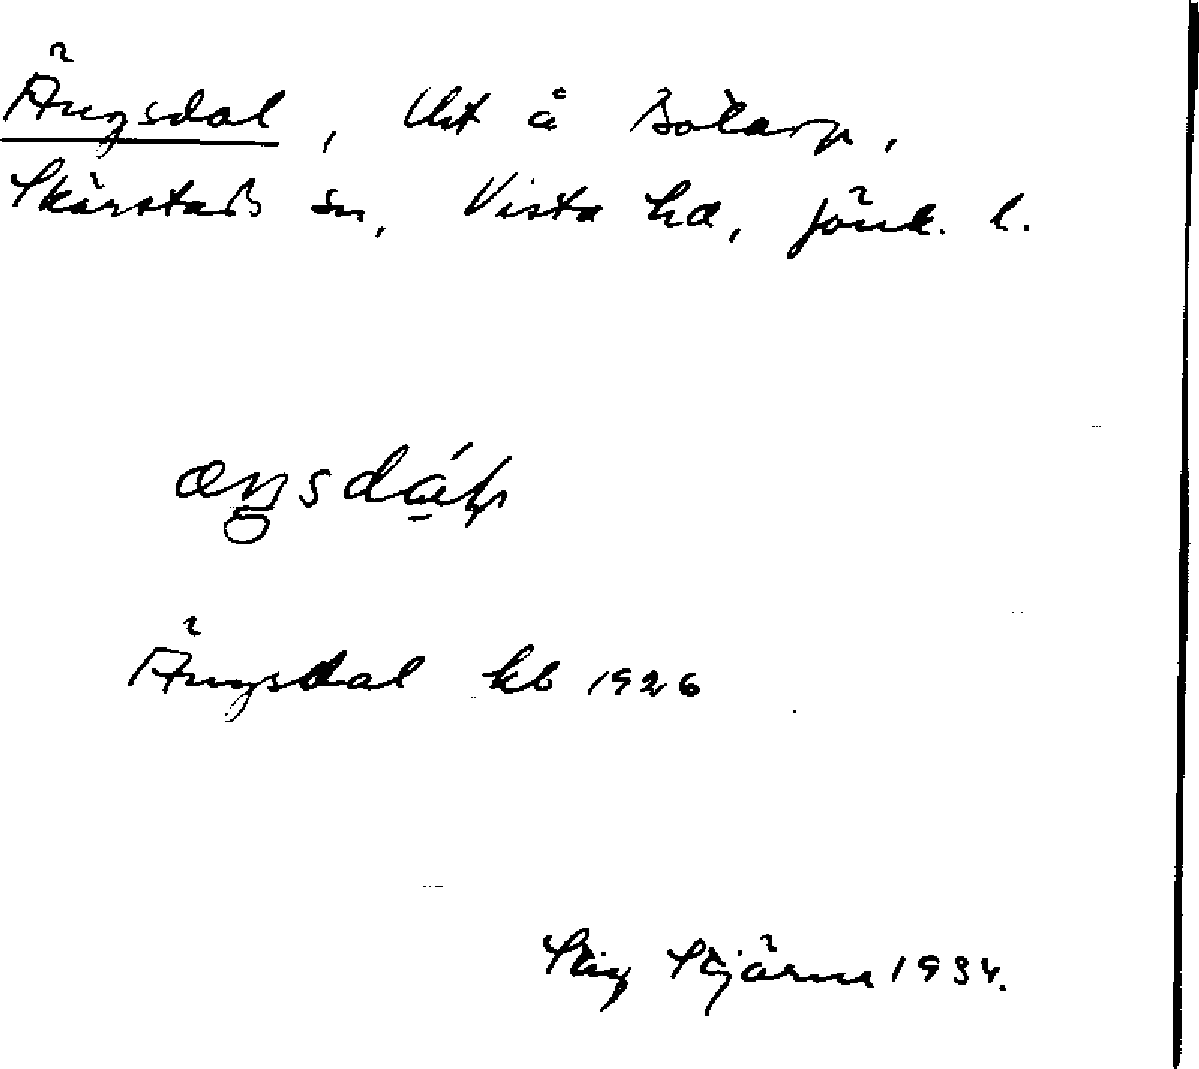 Ängsdal, lht å Bötarp,
Skärstads sn, Vista hd, Jönk. l.
Ängsdal kb 1926
Stig Stjärne 1934.